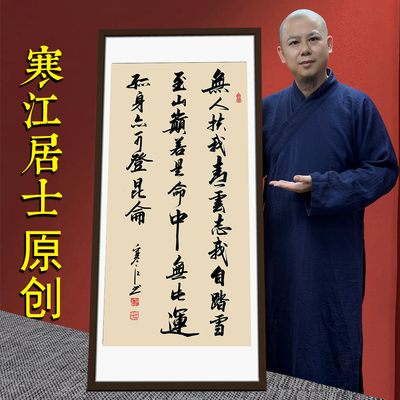 寒江居士 原创
無人扶我青雲志我自踏雪
至山巔若是命中無此運
孤身亦可登昆侖
寒江书